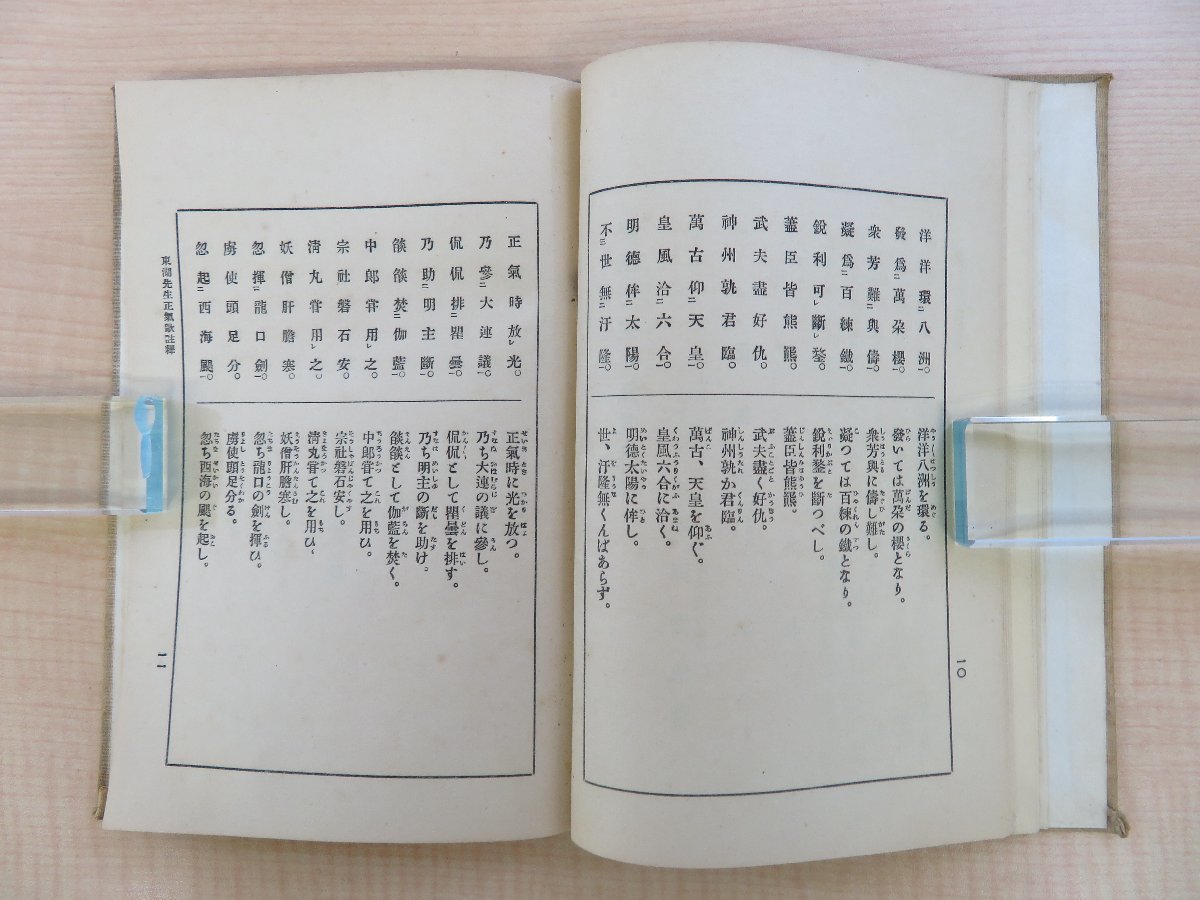 洋洋環二八洲一。
發爲二萬朶櫻一。
衆芳難二與儔一。
凝爲二百練鐵一。
銳利可レ斷レ鍪。
藎臣皆熊羆。
武夫盡好仇。
神州孰君臨。
萬古仰二天皇一。
皇風洽二六合一。
明德侔二太陽一。
不三世無二汙隆一。
洋洋八洲を環る。
發いては萬朶の櫻となり。
衆芳與に儔し難し。
凝つては百練の鐵となり。
銳利鍪を斷つべし。
藎臣皆熊羆。
武夫盡く好仇。
神州孰か君臨。
萬古、天皇を仰ぐ。
皇風六合に洽く。
明德太陽に侔し。
世、汙隆無くんばあらず。
一〇
正氣時放レ光。
乃參二大連議一。
侃侃排二瞿曇一。
乃助二明主斷一。
燄燄焚二伽藍一。
中郎甞用レ之。
宗社磐石安。
淸丸甞用レ之。
妖僧肝膽寒。
忽揮二龍口劍一。
虜使頭足分。
忽起二西海颶一。
正氣時に光を放つ。
乃ち大連の議に參し。
侃侃として瞿曇を排す。
乃ち明主の斷を助け。
燄燄として伽藍を焚く。
中郎甞て之を用ひ。
宗社磐石安し。
淸丸甞て之を用ひ。
妖僧肝膽寒し。
忽ち龍口の劍を揮ひ。
虜使頭足分る。
忽ち西海の颶を起し。
東湖先生正氣歌註釋
一一